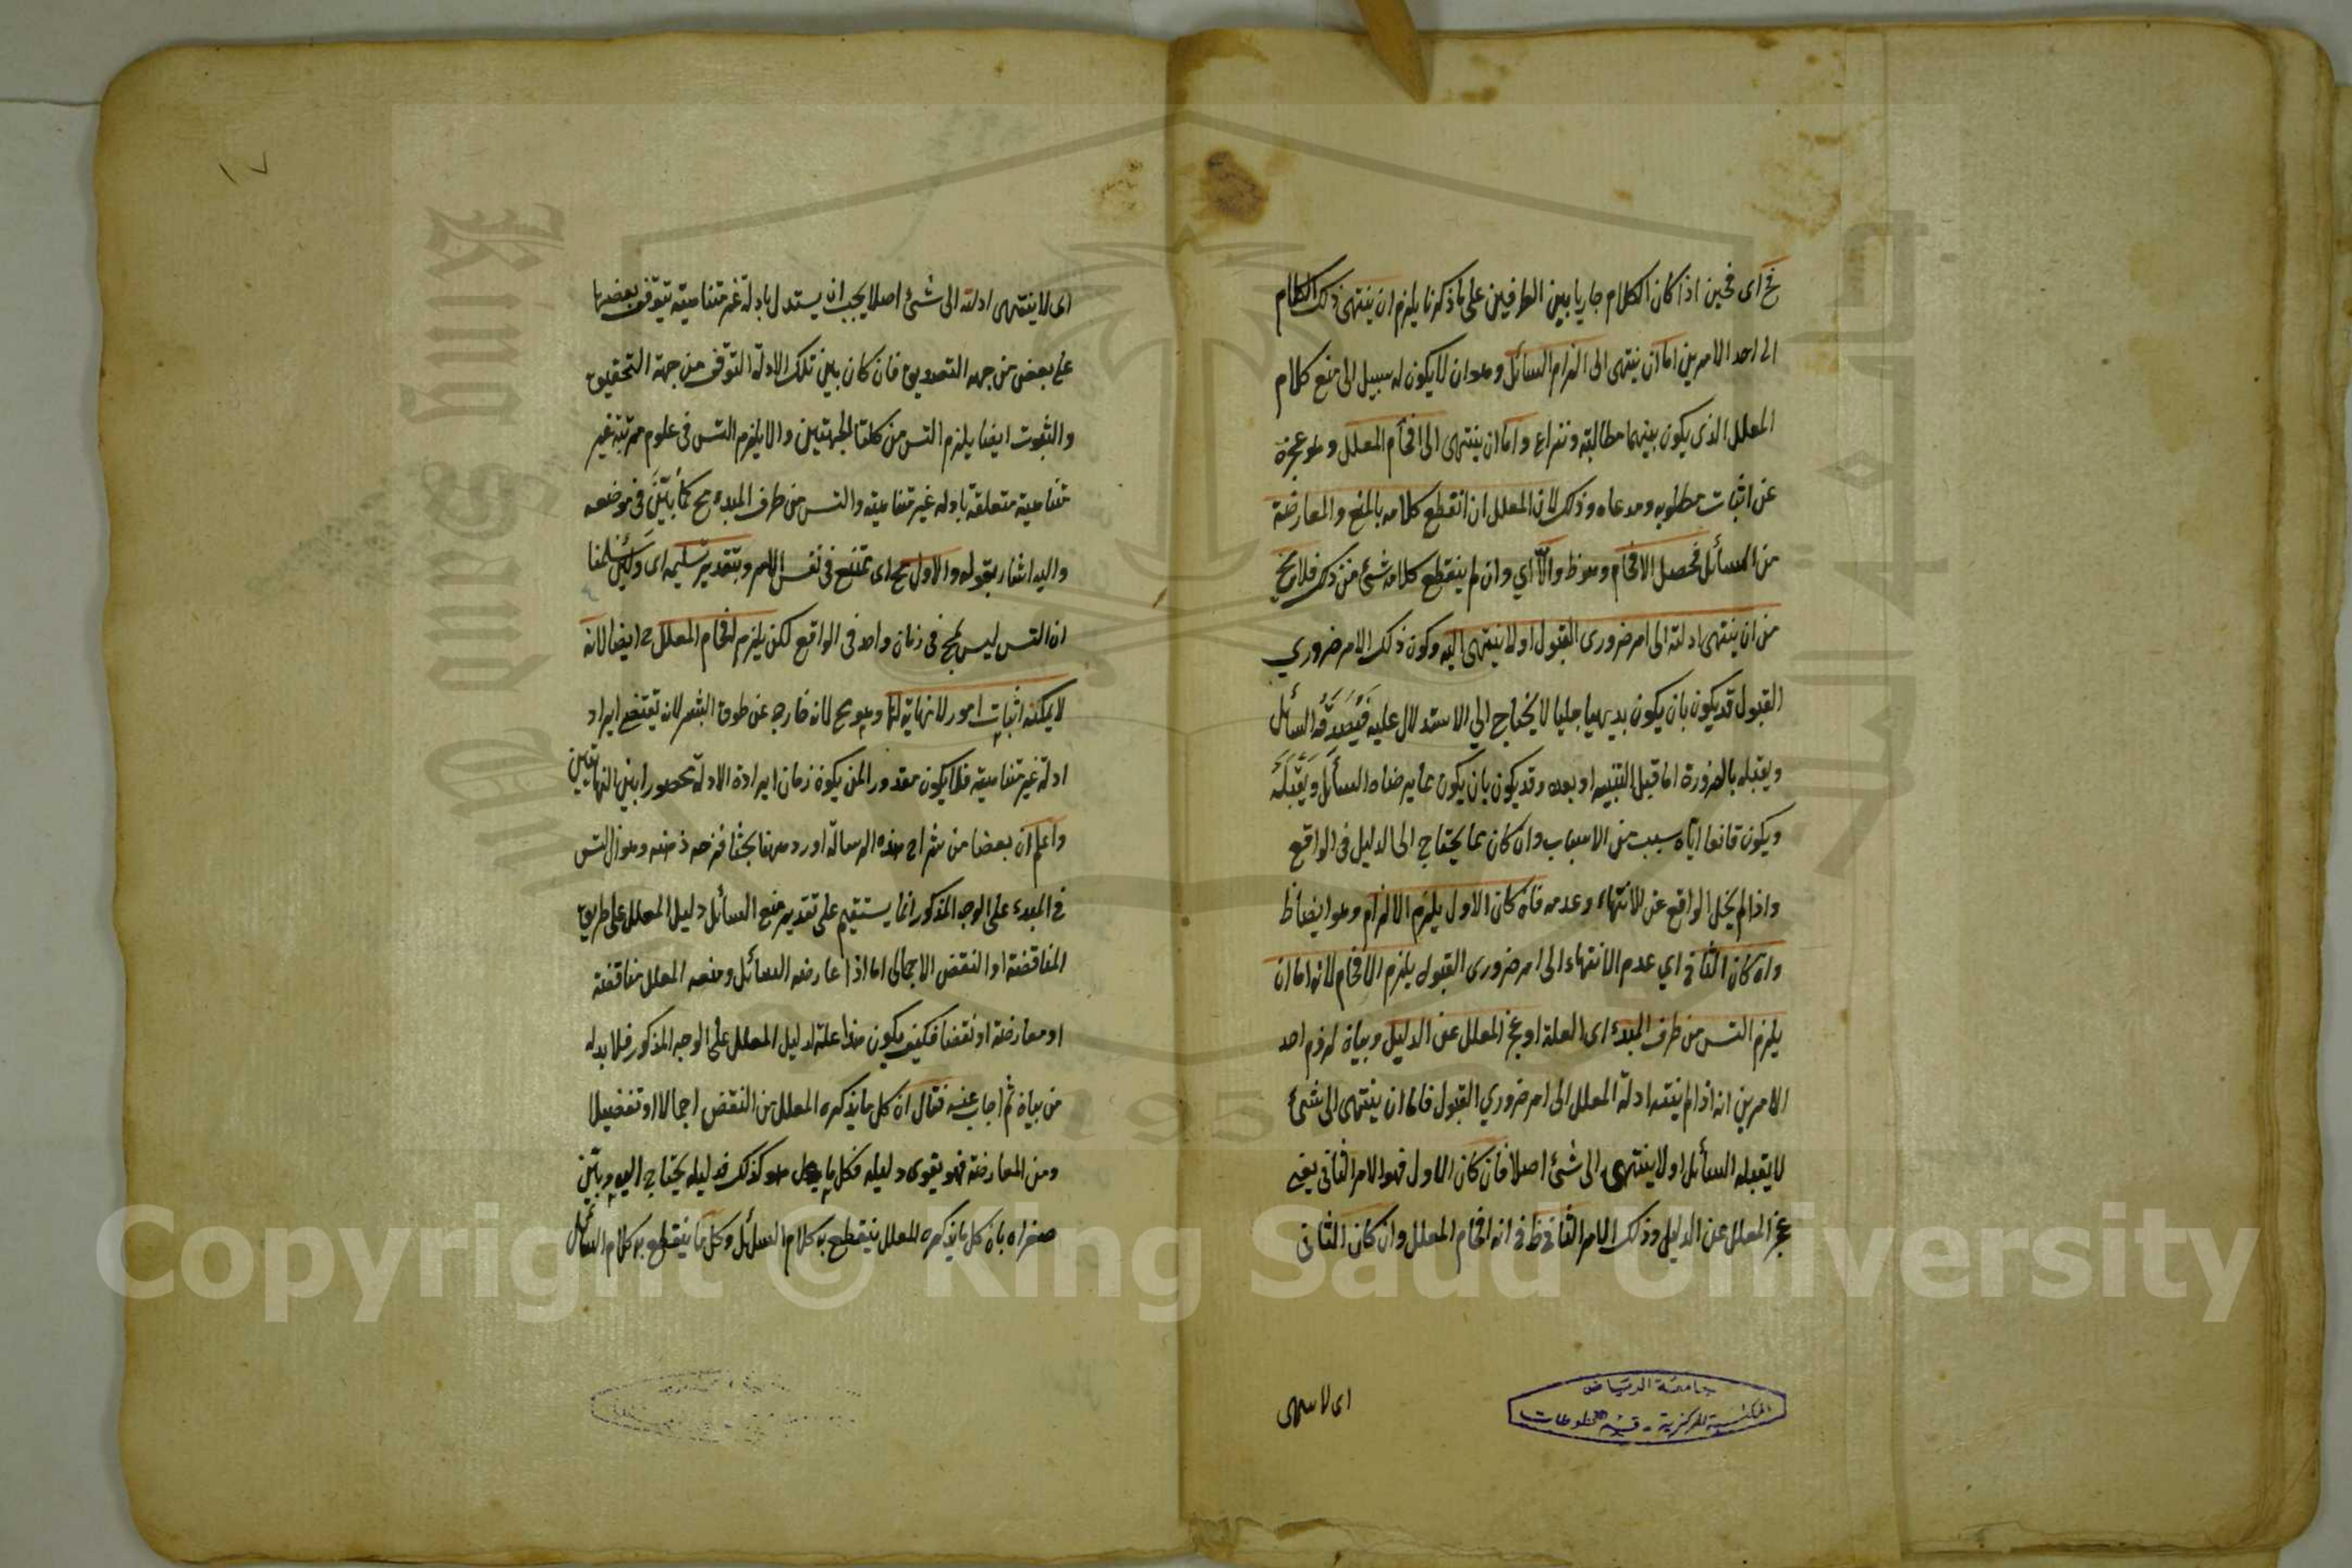 فح اى فحين اذا كان الكلام جاريا بين الطرفين على ما ذكرنا يلزم ان ينتهى ذلك الكلام
الى احد الامرين اما ان ينتهى الى الزام السائل وهو ان لا يكون له سبيل الى منع كلام
المعلل الذى يكون بينهما مطالبة ونزاع واما ان ينتهى الى افحام المعلل وهو عجزه
عن اثبات مطلوبه ومدعاه وذلك لان المعلل ان انقطع كلامه بالمنع والمعارضة
من السائل فحصل الافحام وهو ظ والا اي وان لم ينقطع كلامه شئ من ذلك فلا يخ
من ان ينتهى ادلته الى امر ضرورى القبول او لا ينتهى اليه وكون ذلك الامر ضروري
القبول قد يكون بان يكون بديهيا جليا لا يحتاج الي الاستدلال عليه فيصدقه السائل
ويقبله بالضرورة اما قبل التنبيه او بعده وقد يكون بان يكون مما يرضاه السائل ويقبله
ويكون قانعا اياه سبب من الاسباب وان كان مما يحتاج الى الدليل فى الواقع
واذا لم يخل الواقع عن الانتهاء وعدمه فان كان الاول يلزم الالزام وهو ايضا ظ
وان كان الثانى اي عدم الانتهاء الى امر ضرورى القبول يلزم الافحام لانه اما ان
يلزم التس من طرف المبدء اى العلة او عجز المعلل عن الدليل وبيان لزوم احد
الامرين انه اذا لم ينته ادلة المعلل الى امر ضروري القبول فاما ان ينتهى الى شئ
لا يقبله السائل او لا ينتهى الى شئ اصلا فان كان الاول فهو الامر الثانى يعنى
عجز المعلل عن الدليل وذلك الامر الثانى ظ فى انه افحام المعلل وان كان الثانى
اى لا ينتهى
جامعة الرياض
المكتبة المركزية - قسم المخطوطات
١٧
اى لا ينتهى ادلته الى شئ اصلا يجب ان يستدل بادلة غير متناهية يتوقف بعضها
على بعض من جهة التصديق فان كان بين تلك الادلة التوقف من جهة التحقيق
والثبوت ايضا يلزم التس من كلتا الجهتين والا يلزم التس فى علوم مرتبة غير
متناهية متعلقة بادلة غير متناهية والتس من طرف المبدء مح كما بين فى موضعه
واليه اشار بقوله والاول مح اى ممتنع فى نفس الامر وبتقدير تسليمه اى ولئن سلمنا
ان التس ليس بمح فى زمان واحد فى الواقع لكن يلزم افحام المعلل ح ايضا لانه
لا يمكنه اثبات امور لا نهاية لها وهو مح لانه خارج عن طوق البشر لانه يقتضى ايراد
ادلة غير متناهية فلا يكون مقدورا لمن يكون زمان ايراده الادلة محصورا بين النهايتين
واعلم ان بعضا من شراح هذه الرسالة اورد ههنا بحثا ذهنه وهو ان التس
فى المبدء على الوجه المذكور انما يستقيم على تقدير منع السائل دليل المعلل على طريق
المناقضة او النقض الاجمالى اما اذا عارضه السائل ومنعه المعلل مناقضة
او معارضة او نقضا فكيف يكون هذا علة لدليل المعلل على الوجه المذكور فلا بد له
من بيان ثم اجاب عنه فقال ان كل ما يذكره المعلل من النقض اجمالا او تفصيلا
ومن المعارضة فهو يقوى دليله فكل ما هو كذلك فدليله يحتاج اليه وبين
صغراه بان كل ما يذكره المعلل ينقطع به كلام السائل وكل ما ينقطع به كلام السائل
Copyright © King Saud University
King Saud University
1957